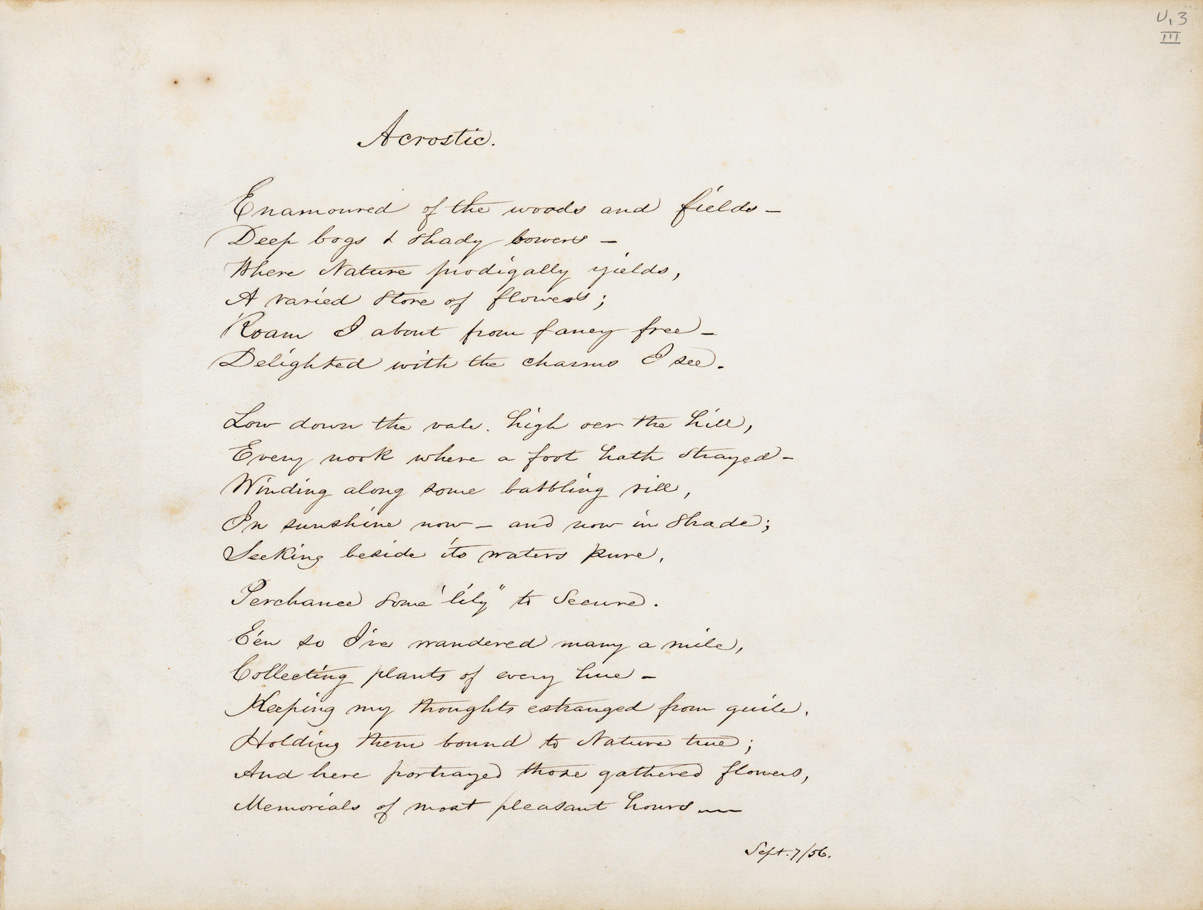 U,3
III
Acrostic.
Enamoured of the woods and fields –
Deep bogs & shady bowers –
Where Nature prodigally yields,
A varied store of flowers;
Roam I about from fancy free –
Delighted with the charms I see.
Low down the vale. high oer the hill,
Every nook where a foot hath strayed –
Winding along some babbling rill,
In sunshine now – and now in shade;
Seeking beside its waters pure,
Perchance some "lily" to secure.
E'en so I've wandered many a mile,
Collecting plants of every hue –
Keeping my thoughts estranged from guile.
Holding them bound to Nature true;
And here portrayed those gathered flowers,
Memorials of most pleasant hours —
Sept. 7/56.